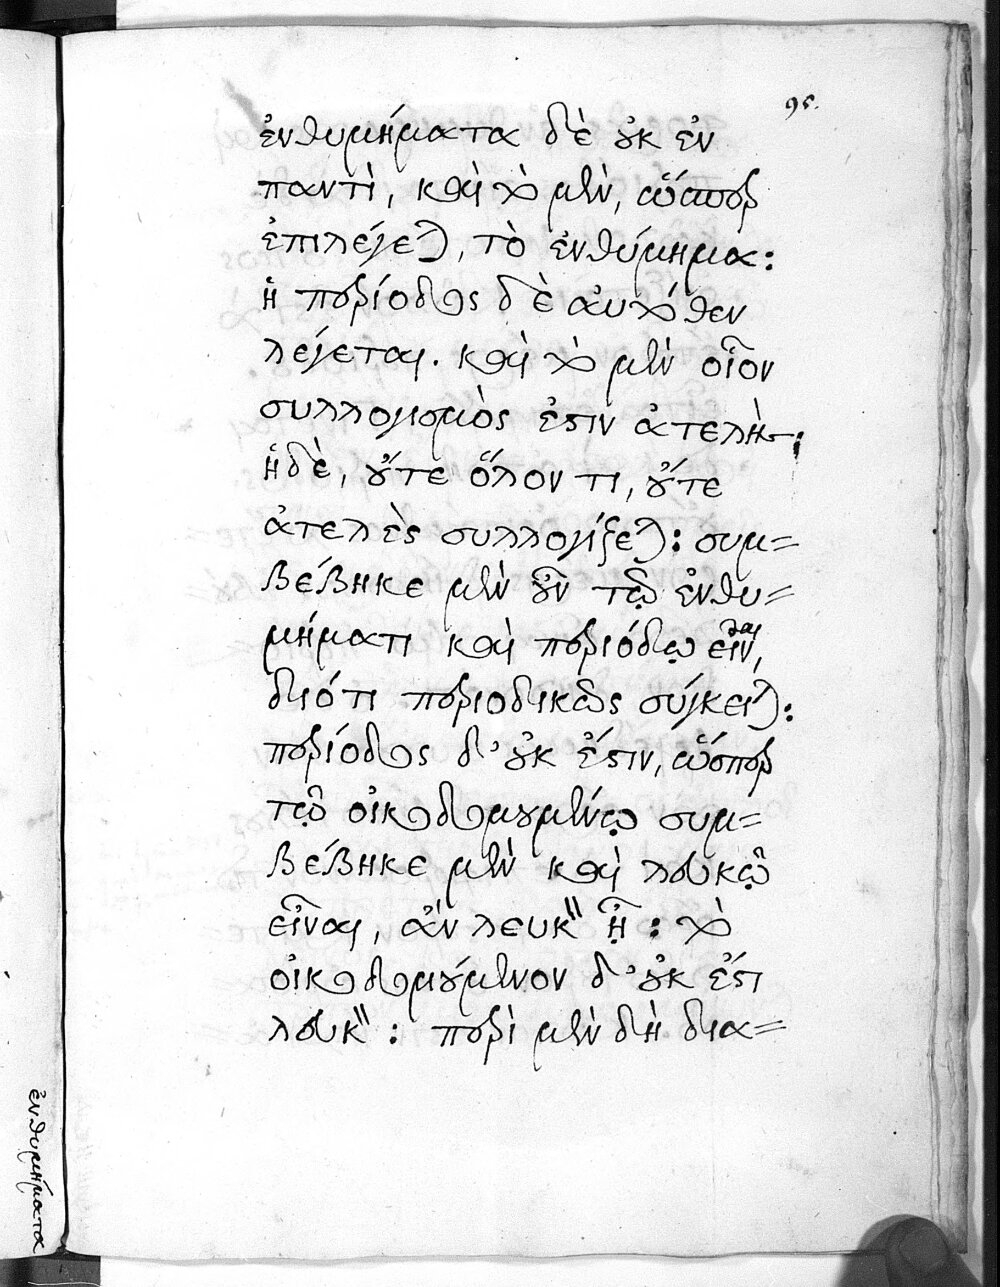 95.
ἐνθυμήματα δὲ οὐκ ἐν
παντὶ, καὶ τὸ μὲν, ὥσπερ
ἐπιλέγεται, τὸ ἐνθύμημα:
ἡ περίοδος δὲ αὐτόθεν
λέγεται. καὶ τὸ μὲν οἷον
συλλογισμὸς ἐστιν ἀτελής·
ἡ δὲ, οὔτε ὅλον τι, οὔτε
ἀτελὲς συλλογίζεται: συμ=
βέβηκε μὲν οὖν τῷ ἐνθυ=
μήματι καὶ περιόδῳ εἶναι,
διότι περιοδικῶς σύγκειται:
περίοδος δ' οὐκ ἔστιν, ὥσπερ
τῷ οἰκοδομουμένῳ συμ=
βέβηκε μὲν καὶ λευκῷ
εἶναι, ἂν λευκὸν ᾖ: τὸ
οἰκοδομούμενον δ' οὐκ ἔστι
λευκὸν: περὶ μὲν δὴ δια=
ἐνθυμήματα